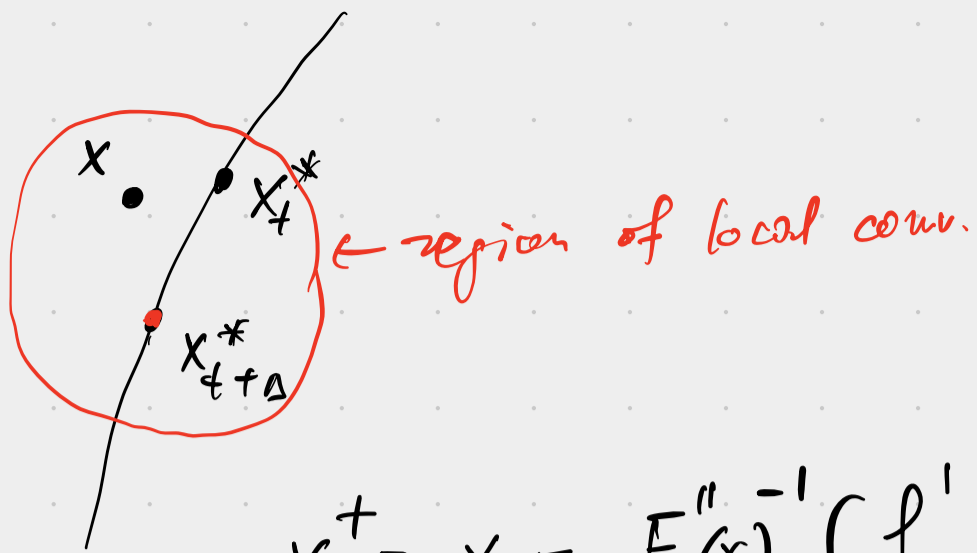 x
x*_t
← region of local conv.
x*_{t+Δ}
x⁺ = x − F''(x)⁻¹ (f'